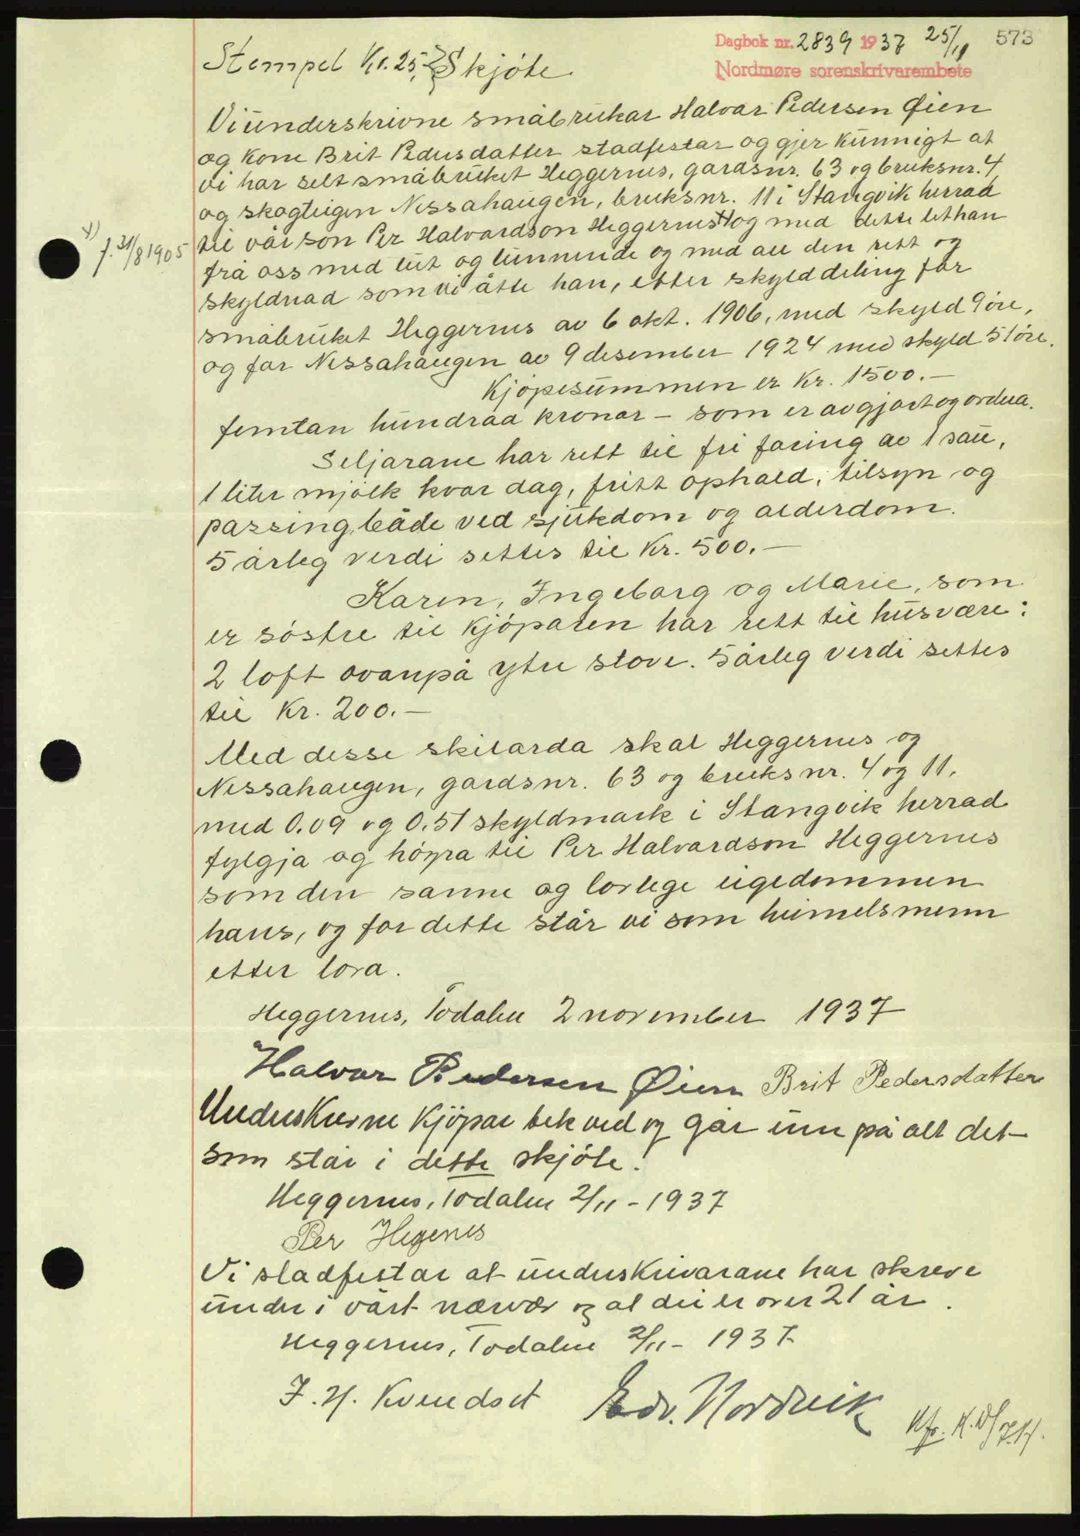 Dagbok nr. 2839 1937 25/11 573
Nordmøre sorenskrivarembete
Stempel Kr. 25,- Skjöte
Vi underskrivne småbrukar Halvar Pedersen Øien
og kone Brit Pedersdatter stadfestar og gjer kunnigt at
vi har selt småbruket Heggernes, gardsnr. 63 og bruksnr. 4
og skogteigen Nessahaugen, bruksnr. 11 i Stangvik herrad
til vår son Per Halvardson Heggernes x) og med dette let han
x) f. 31/8 1905
frå oss med lut og lunnende og med all den rett og
skyldnad som vi åtte han, etter skylddeling for
småbruket Heggernes av 6 okt. 1906, med skyld 9 öre,
og for Nessahaugen av 9 desember 1924 med skyld 51 öre.
Kjöpesummen er Kr. 1500.-
femtan hundraa kronor - som er avgjort og ordna.
Seljarane har rett til fri foring av 1 sau,
1 liter mjölk kvar dag, fritt ophald, tilsyn og
passing både ved sjukdom og alderdom.
5 årleg verdi settes til Kr. 500.-
Karen, Ingeborg og Marie, som
er söstre til kjöparen har rett til husvære:
2 loft ovanpå ytre stove. 5 årleg verdi settes
til Kr. 200.-
Med desse skilorda skal Heggernes og
Nessahaugen, gardsnr. 63 og bruksnr. 4 og 11,
med 0.09 og 0.51 skyldmark i Stangvik herrad
fylgja og höyra til Per Halvardson Heggernes
som den sanne og lovlege eigedommen
hans, og for dette står vi som heimelsmenn
etter lova.
Heggernes, Todalen 2 november 1937
Halvar Pedersen Øien Brit Pedersdatter
Underskrivne kjöpar tek ved og går inn på alt det
som står i dette skjöte.
Heggernes, Todalen 2/11 - 1937
Per Hegenes
Vi stadfestar at underskrivarane har skreve
under i vårt nærvær og at dei er over 21 år.
Heggernes, Todalen 2/11 - 1937
J. H. Kvendset Edv. Nordvik
Kfr. K.N/J.H.